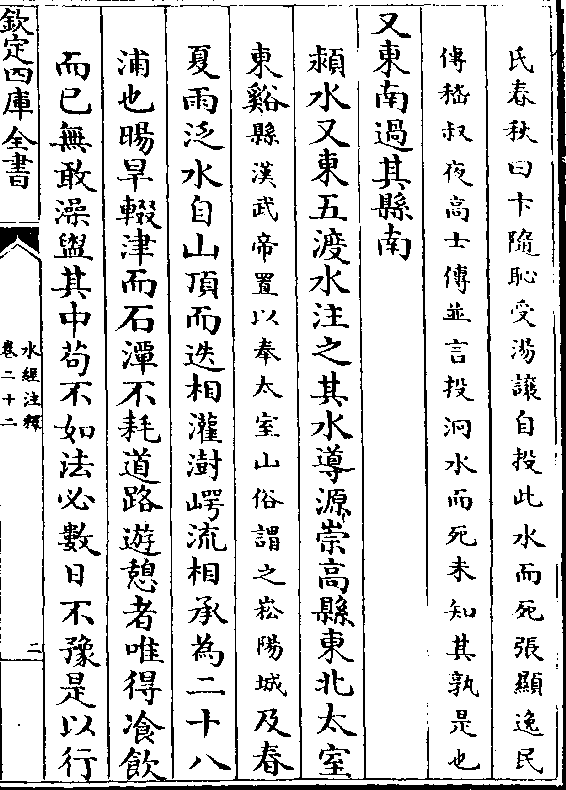 氏春秋曰卞隨恥受湯讓自投此水而死張顯逸民
傳嵇叔夜高士傳並言投泂水而死未知其孰是也
又東南過其縣南
潁水又東五渡水注之其水導源崇高縣東北太室
東谿縣漢武帝置以奉太室山俗謂之崧陽城及春
夏雨泛水自山頂而迭相灌澍崿流相承為二十八
浦也暘旱輟津而石潭不耗道路遊憩者唯得飡飲
而已無敢澡盥其中苟不如法必數日不豫是以行
欽定四庫全書
水經注釋
卷二十二
二